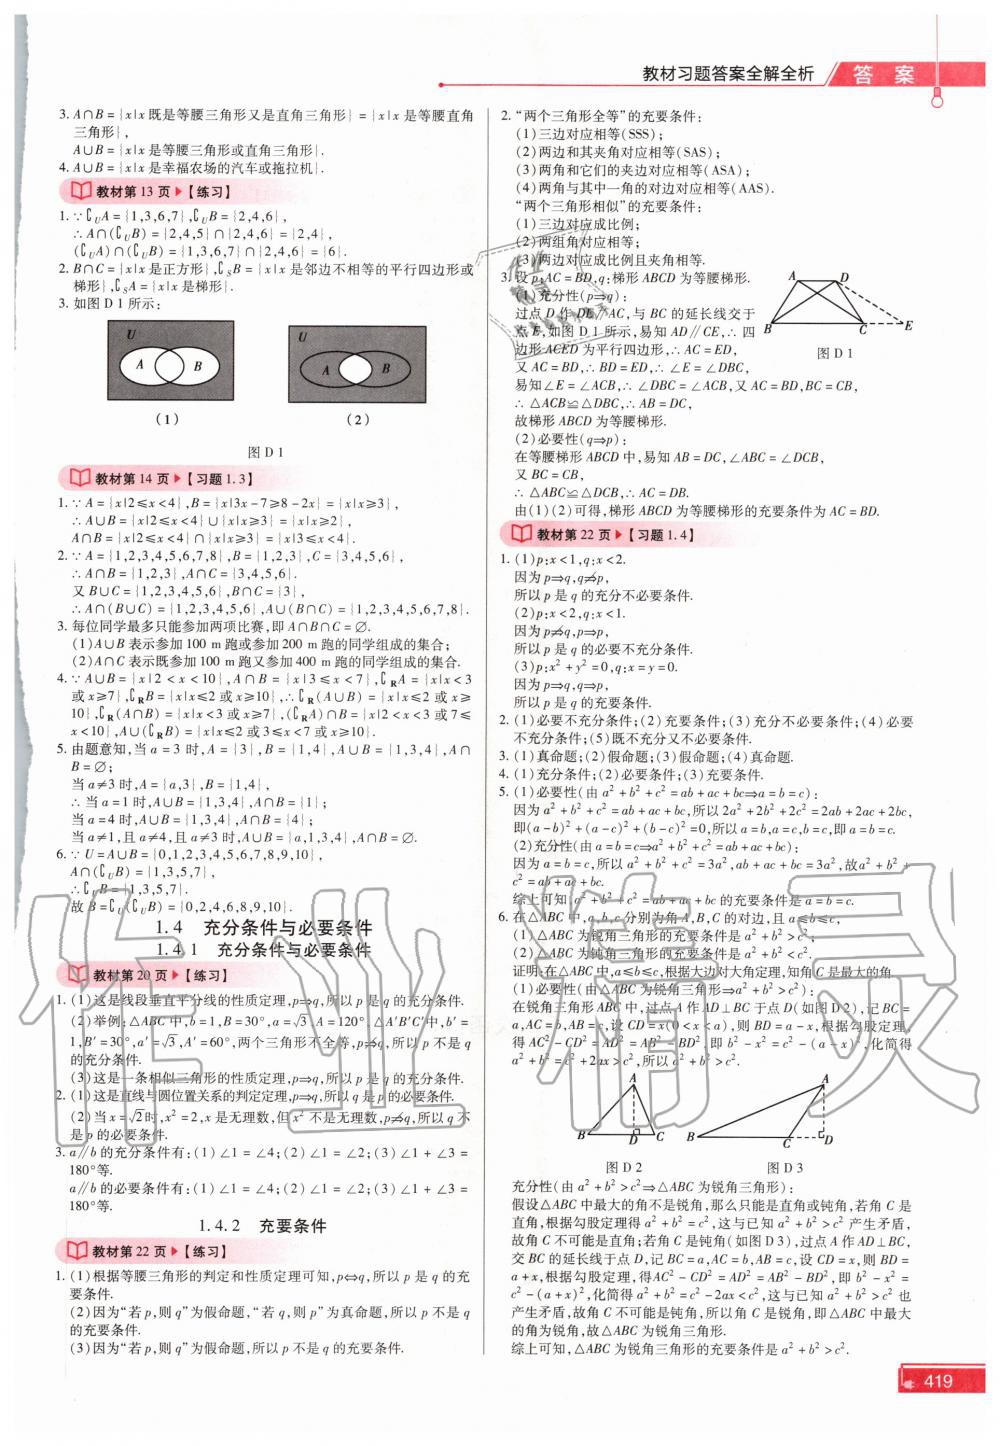 教材习题答案全解全析 答案
3. A∩B={x|x 既是等腰三角形又是直角三角形}={x|x 是等腰直角
三角形},
A∪B={x|x 是等腰三角形或直角三角形}.
4. A∪B={x|x 是幸福农场的汽车或拖拉机}.
教材第 13 页▶【练习】
1. ∵∁UA={1,3,6,7},∁UB={2,4,6},
∴A∩(∁UB)={2,4,5}∩{2,4,6}={2,4},
(∁UA)∩(∁UB)={1,3,6,7}∩{2,4,6}={6}.
2. B∩C={x|x 是正方形},∁SB={x|x 是邻边不相等的平行四边形或
梯形},∁SA={x|x 是梯形}.
3. 如图 D 1 所示:
U A B
U A B
(1) (2)
图 D 1
教材第 14 页▶【习题 1.3】
1. ∵A={x|2≤x<4},B={x|3x-7≥8-2x}={x|x≥3},
∴A∪B={x|2≤x<4}∪{x|x≥3}={x|x≥2},
A∩B={x|2≤x<4}∩{x|x≥3}={x|3≤x<4}.
2. ∵A={1,2,3,4,5,6,7,8},B={1,2,3},C={3,4,5,6},
∴A∩B={1,2,3},A∩C={3,4,5,6}.
又 B∪C={1,2,3,4,5,6},B∩C={3},
∴A∩(B∪C)={1,2,3,4,5,6},A∪(B∩C)={1,2,3,4,5,6,7,8}.
3. 每位同学最多只能参加两项比赛,即 A∩B∩C=∅.
(1)A∪B 表示参加 100 m 跑或参加 200 m 跑的同学组成的集合;
(2)A∩C 表示既参加 100 m 跑又参加 400 m 跑的同学组成的集合.
4. ∵A∪B={x|2<x<10},A∩B={x|3≤x<7},∁RA={x|x<3
或 x≥7},∁RB={x|x≤2 或 x≥10},∴∁R(A∪B)={x|x≤2 或 x≥
10},∁R(A∩B)={x|x<3 或 x≥7},(∁RA)∩B={x|2<x<3 或 7≤
x<10},A∪(∁RB)={x|x≤2 或 3≤x<7 或 x≥10}.
5. 由题意知,当 a=3 时,A={3},B={1,4},A∪B={1,3,4},A∩
B=∅;
当 a≠3 时,A={a,3},B={1,4},
∴当 a=1 时,A∪B={1,3,4},A∩B={1};
当 a=4 时,A∪B={1,3,4},A∩B={4};
当 a≠1,且 a≠4,且 a≠3 时,A∪B={a,1,3,4},A∩B=∅.
6. ∵U=A∪B={0,1,2,3,4,5,6,7,8,9,10},
A∩(∁UB)={1,3,5,7},
∴∁UB={1,3,5,7}.
故 B=∁U(∁UB)={0,2,4,6,8,9,10}.
1.4 充分条件与必要条件
1.4.1 充分条件与必要条件
教材第 20 页▶【练习】
1. (1)这是线段垂直平分线的性质定理,p⇒q,所以 p 是 q 的充分条件.
(2)举例:△ABC 中,b=1,B=30°,a=√3,A=120°,△A′B′C′中,b′=
1,B′=30°,a′=√3,A′=60°,两个三角形不全等,p⇏q,所以 p 不是 q
的充分条件.
(3)这是一条相似三角形的性质定理,p⇒q,所以 p 是 q 的充分条件.
2. (1)这是直线与圆位置关系的判定定理,p⇒q,所以 q 是 p 的必要条件.
(2)当 x=√2时,x²=2,x 是无理数,但 x² 不是无理数,p⇏q,所以 q 不
是 p 的必要条件.
3. a∥b 的充分条件有:(1)∠1=∠4;(2)∠1=∠2;(3)∠1+∠3=
180°等.
a∥b 的必要条件有:(1)∠1=∠4;(2)∠1=∠2;(3)∠1+∠3=
180°等.
1.4.2 充要条件
教材第 22 页▶【练习】
1. (1)根据等腰三角形的判定和性质定理可知,p⇔q,所以 p 是 q 的充
要条件.
(2)因为“若 p,则 q”为假命题,“若 q,则 p”为真命题,所以 p 不是 q
的充要条件.
(3)因为“若 p,则 q”为假命题,所以 p 不是 q 的充要条件.
2. “两个三角形全等”的充要条件:
(1)三边对应相等(SSS);
(2)两边和其夹角对应相等(SAS);
(3)两角和它们的夹边对应相等(ASA);
(4)两角与其中一角的对边对应相等(AAS).
“两个三角形相似”的充要条件:
(1)三边对应成比例;
(2)两组角对应相等;
(3)两边对应成比例且夹角相等.
3. 设 p:AC=BD,q:梯形 ABCD 为等腰梯形.
(1)充分性(p⇒q):
过点 D 作 DE∥AC,与 BC 的延长线交于
点 E,如图 D 1 所示,易知 AD∥CE,∴四
边形 ACED 为平行四边形,∴AC=ED,
又 AC=BD,∴BD=ED,∴∠E=∠DBC,
易知∠E=∠ACB,∴∠DBC=∠ACB,又 AC=BD,BC=CB,
∴△ACB≌△DBC,∴AB=DC,
故梯形 ABCD 为等腰梯形.
A D B C E
图 D 1
(2)必要性(q⇒p):
在等腰梯形 ABCD 中,易知 AB=DC,∠ABC=∠DCB,
又 BC=CB,
∴△ABC≌△DCB,∴AC=DB.
由(1)(2)可得,梯形 ABCD 为等腰梯形的充要条件为 AC=BD.
教材第 22 页▶【习题 1.4】
1. (1)p:x<1,q:x<2.
因为 p⇒q,q⇏p,
所以 p 是 q 的充分不必要条件.
(2)p:x<2,q:x<1.
因为 p⇏q,p⇒p,
所以 p 是 q 的必要不充分条件.
(3)p:x²+y²=0,q:x=y=0.
因为 p⇒q,q⇒p,
所以 p 是 q 的充要条件.
2. (1)必要不充分条件;(2)充要条件;(3)充分不必要条件;(4)必要
不充分条件;(5)既不充分又不必要条件.
3. (1)真命题;(2)假命题;(3)假命题;(4)真命题.
4. (1)充分条件;(2)必要条件;(3)充要条件.
5. (1)必要性(由 a²+b²+c²=ab+ac+bc⇒a=b=c):
因为 a²+b²+c²=ab+ac+bc,所以 2a²+2b²+2c²=2ab+2ac+2bc,
即(a-b)²+(a-c)²+(b-c)²=0,所以 a=b,a=c,b=c,即 a=b=c.
(2)充分性(由 a=b=c⇒a²+b²+c²=ab+ac+bc):
因为 a=b=c,所以 a²+b²+c²=3a²,ab+ac+bc=3a²,故a²+b²+
c²=ab+ac+bc.
综上可知,a²+b²+c²=ab+ac+bc 的充要条件是 a=b=c.
6. 在△ABC 中,a,b,c 分别为角 A,B,C 的对边,且 a≤b≤c,
(1)△ABC 为锐角三角形的充要条件是 a²+b²>c²;
(2)△ABC 为钝角三角形的充要条件是 a²+b²<c².
证明:在△ABC 中,a≤b≤c,根据大边对大角定理,知角 C 是最大的角.
(1)必要性(由△ABC 为锐角三角形⇒a²+b²>c²):
在锐角三角形 ABC 中,过点 A 作 AD⊥BC 于点 D(如图 D 2),记 BC=
a,AC=b,AB=c,设 CD=x(0<x<a),则 BD=a-x,根据勾股定理,
得 AC²-CD²=AD²=AB²-BD²,即 b²-x²=c²-(a-x)²,化简得
a²+b²=c²+2ax>c²,所以 a²+b²>c².
A B D C
A B C D
图 D 2 图 D 3
充分性(由 a²+b²>c²⇒△ABC 为锐角三角形):
假设△ABC 中最大的角不是锐角,那么只能是直角或钝角,若角 C 是
直角,根据勾股定理得 a²+b²=c²,这与已知 a²+b²>c² 产生矛盾,
故角 C 不可能是直角;若角 C 是钝角(如图 D 3),过点 A 作 AD⊥BC,
交 BC 的延长线于点 D,记 BC=a,AC=b,AB=c,设 CD=x,则 BD=
a+x,根据勾股定理,得AC²-CD²=AD²=AB²-BD²,即 b²-x²=
c²-(a+x)²,化简得 a²+b²=c²-2ax<c²,这与已知 a²+b²>c² 也
产生矛盾,故角 C 不可能是钝角,所以角 C 是锐角,即△ABC 中最大
的角为锐角,故△ABC 为锐角三角形.
综上可知,△ABC 为锐角三角形的充要条件是 a²+b²>c².
419
作业精灵